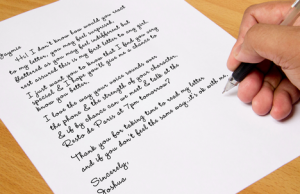 Jaynie
Hi! I don't know how would you react
to my letter, you may feel surprised,
flattered or you may feel indifferent but
rest assured this is my first letter to any girl.
I just want you to know that I find you very
special & I hope you'll give me a chance to
know you better.
I love the way your voice sounds over
the phone & the strength of your character,
& if by chance can we meet & talk at the
Resto de Paris at 7pm tomorrow?
Thank you for taking time to read my letter
and if you don't feel the same way, it's ok with me
Sincerely,
Joshua